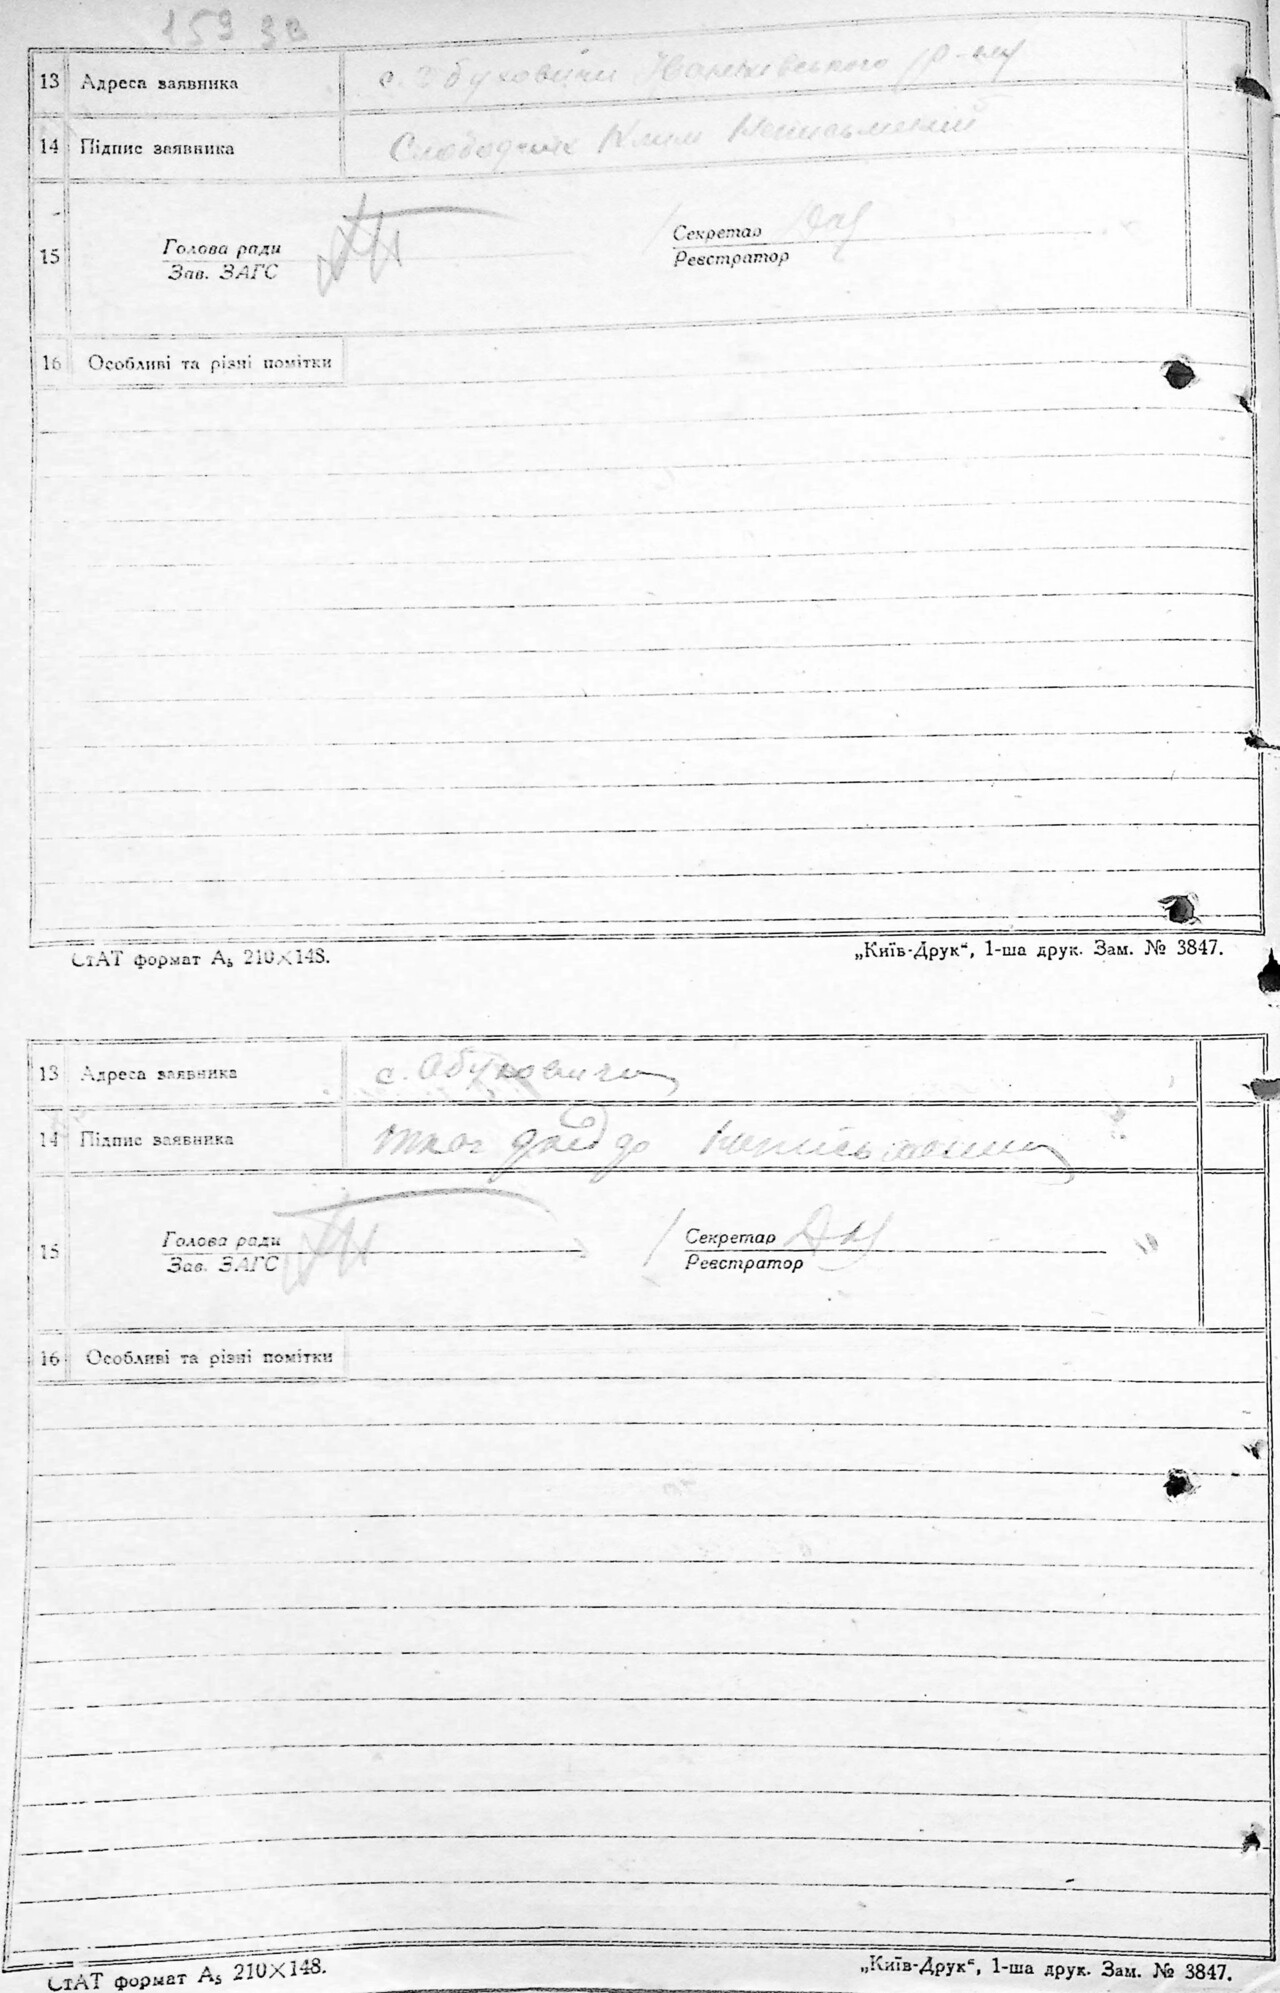 159 зв
13 Адреса заявника с. Обуховичи Іванківського р-ну
14 Підпис заявника Слободник Клим Неписьменний
15 Голова ради Секретар
Зав. ЗАГС Реєстратор
16 Особливі та різні помітки
СтАТ формат А₅ 210×148. „Київ-Друк“, 1-ша друк. Зам. № 3847.
13 Адреса заявника с. Обуховичи
14 Підпис заявника
15 Голова ради Секретар
Зав. ЗАГС Реєстратор
16 Особливі та різні помітки
СтАТ формат А₅ 210×148. „Київ-Друк“, 1-ша друк. Зам. № 3847.